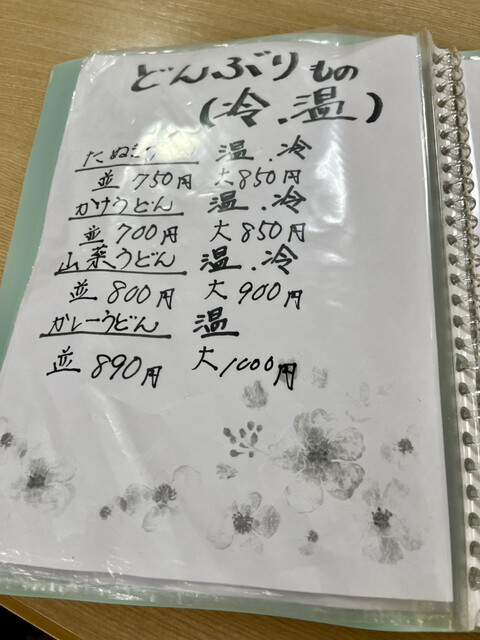 どんぶりもの
(冷.温)
たぬき 温.冷
並 750円 大850円
かけうどん 温.冷
並 700円 大850円
山菜うどん 温.冷
並 800円 大900円
カレーうどん 温
並 890円 大1000円